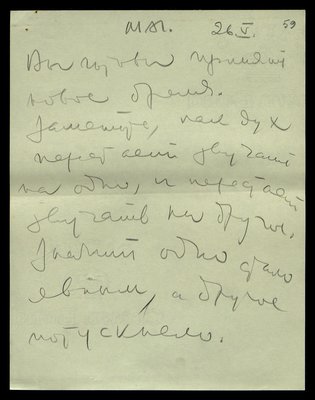 МАЙ. 26.V. 59
Вы готовы принять
новое время.
Заметьте, как дух
перестаёт звучать
на одно, и перестаёт
звучать на другое.
Значит одно стало
явным, а другое
потускнело.